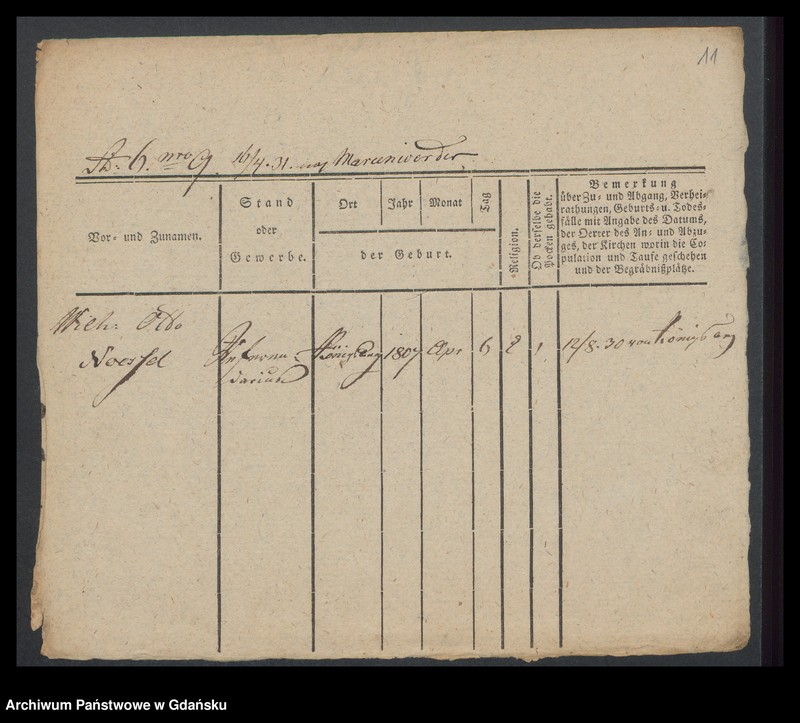 11
6. nro 9. 16/4. 31. nach Marienwerder
Vor- und Zunamen.
Stand
oder
Gewerbe.
Ort Jahr Monat Tag
der Geburt.
Religion.
Ob derselbe die
Pocken gehabt.
Bemerkung
über Zu- und Abgang, Verhei-
rathungen, Geburts- u. Todes-
fälle mit Angabe des Datums,
der Oerter des An- und Abzu-
ges, der Kirchen worin die Co-
pulation und Taufe geschehen
und der Begräbnißplätze.
Wilh: Otto
Referen-
darius
Königsberg 1807 Apr 6 2 1 12/8. 30 von Königsberg
Archiwum Państwowe w Gdańsku